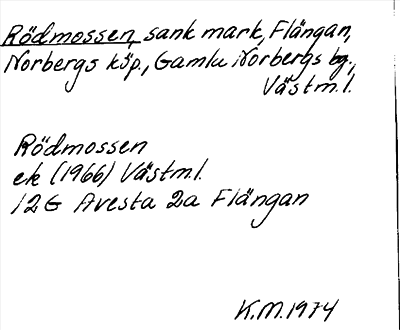 Rödmossen, sank mark, Flängan,
Norbergs köp., Gamla Norbergs bg.,
Västm.l.
Rödmossen
ek (1966) Västm.l.
12G Avesta 2a Flängan
K.M.1974